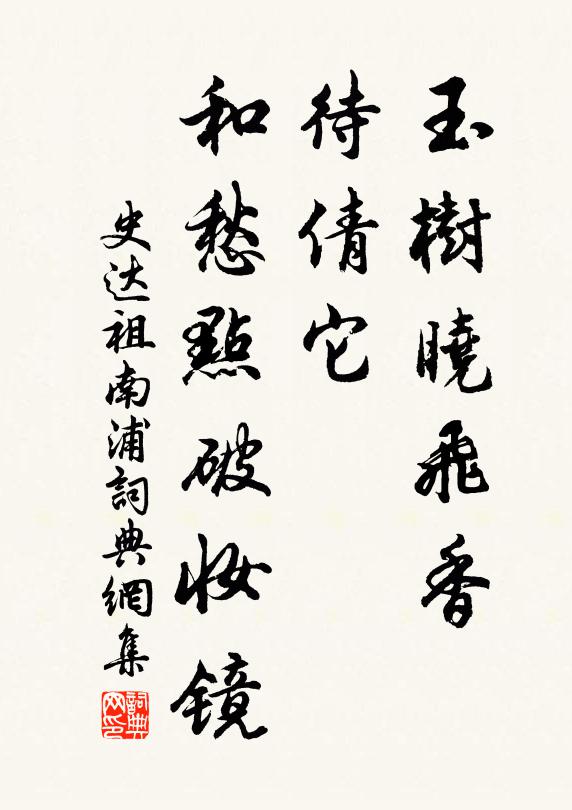 玉樹曉飛香
待倩它
和愁點破妝鏡
史达祖南浦詞典網集
詞典网印